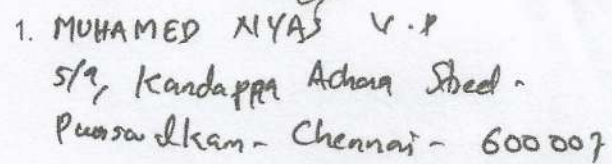 1. MUHAMED NYAS V.P
5/9, Kandappa Achara Street -
Purasawalkam - Chennai - 600007